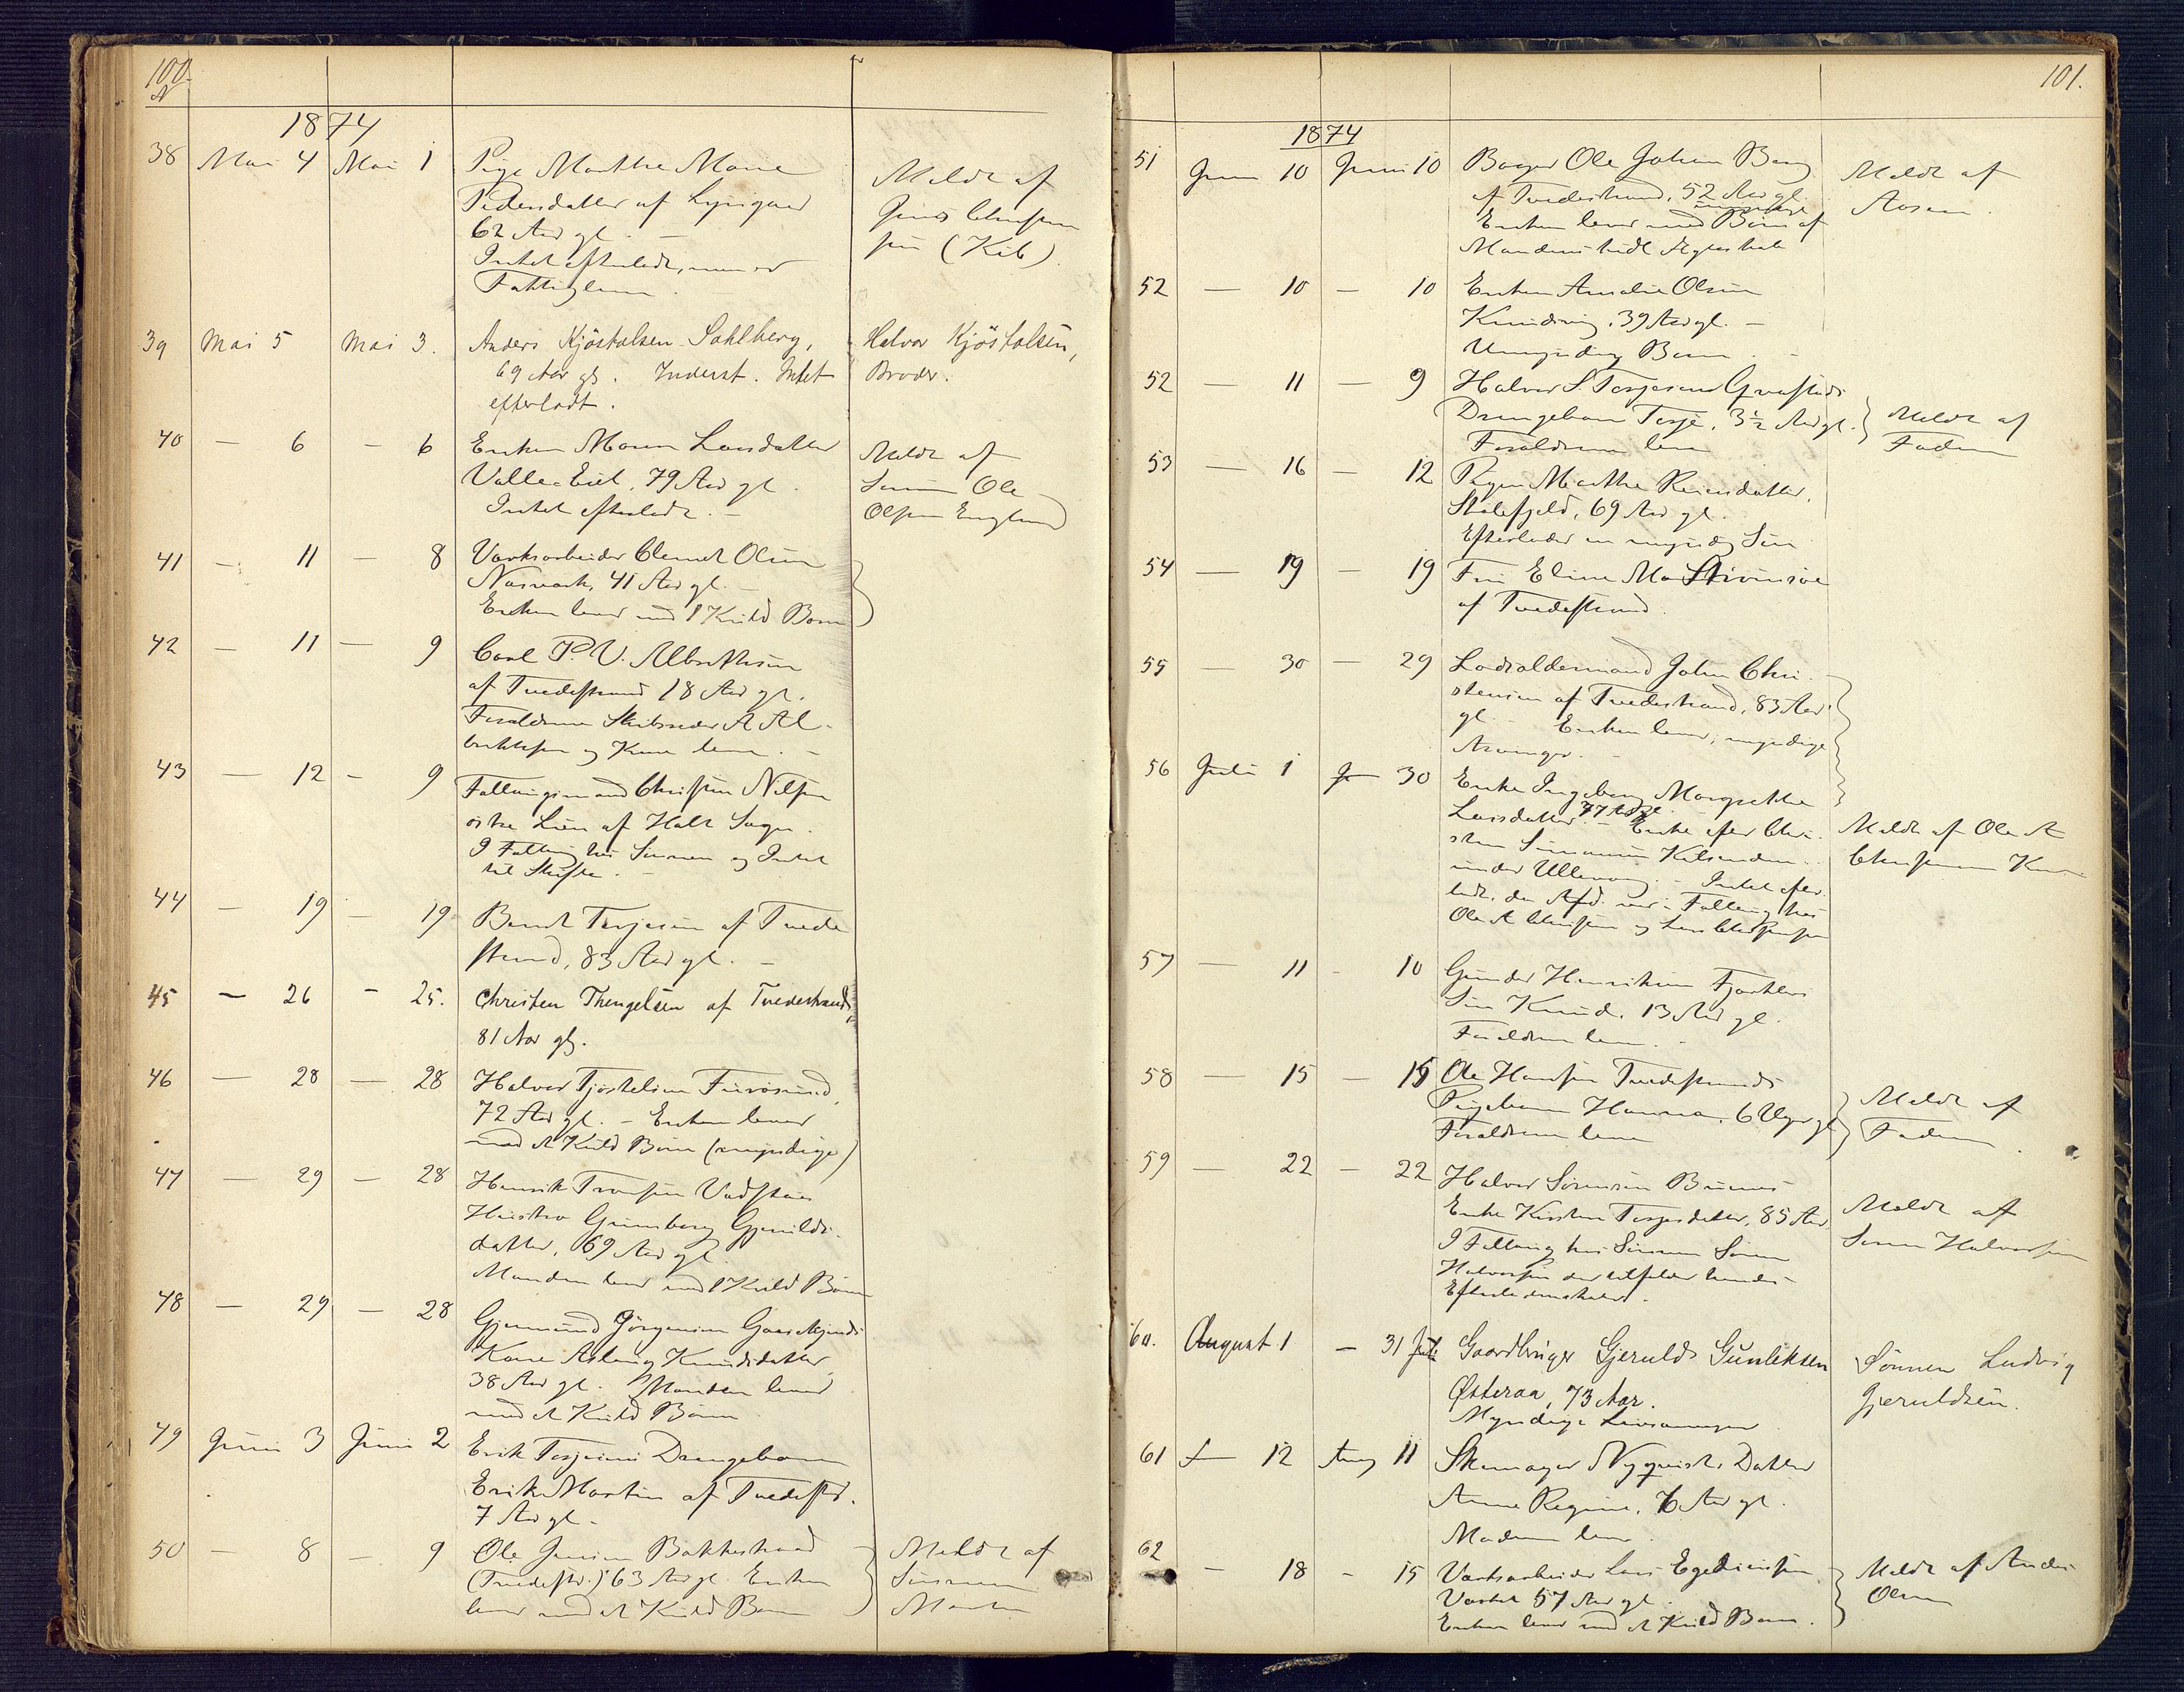 100.
1874
38 Mai 4 Mai 1 Pige Marthe Marie
Pedersdatter af Lyngaer
62 Aar gl. —
Intet efterladt, var
Fattiglem
Meldt af
(Kib)
39 Mai 5 Mai 3. Anders Kjöstolsen Sahlberg,
69 Aar gl. Inderst. Intet
efterladt.
Halvor Kjöstolsen,
Broder.
40 — 6 — 6 Enken Maren Larsdatter
Valle Eiet, 79 Aar gl.
Intet efterladt. —
Meldt af
Sönnen Ole
Olsen England
41 — 11 — 8 Værksarbeider Clemet Olsen
Næsværk, 41 Aar gl. —
Enken lever med 1 Kuld Börn
42 — 11 — 9 Carl P. V. Albrethsen
af Tvedestrand 18 Aar gl.
Forældrene Skibsreder A Al-
brethsen og Kone lever. —
43 — 12 — 9 Föllaugsmand Christen Nilsen
östre Lien af Holt Sogn.
I Föllaug hos Sönnen og Intet
til Skifte. —
44 — 19 — 19 Berndt Terjesen af Tvede
strand, 83 Aar gl. —
45 — 26 — 25. Christen Thengelsen af Tvedestrand,
81 Aar gl.
46 — 28 — 28 Halvor Tjöstelsen Furösund,
72 Aar gl. — Enken lever
med et Kuld Börn (myndige)
47 — 29 — 28 Henrik Tronsen Vadsteen
Hustro Gunborg Gjerulds-
datter, 69 Aar gl.
Manden lever med 1 Kuld Börn
48 — 29 — 28 Gjermund Jörgensen
Kone Aslaug Knudsdatter
38 Aar gl. Manden lever
med et Kuld Börn
49 Juni 3 Juni 2 Erik Terjesens Drengebarn
Erik Martin af Tvedestr.
7 Aar gl.
50 — 8 — 9 Ole Jensen Bakkestrand
(Tvedestr.) 63 Aar gl. Enken
lever med et Kuld Börn
Meldt af
Sönnen
Martin
101.
1874
51 Juni 10 Juni 10 Borger Ole Johan Berg
af Tvedestrand, 52 Aar gl.
Enken lever med Börn af
Mandens tidl Ægteskab
Meldt af
52 — 10 — 10 Enken Amalie Olsen
39 Aar gl. —
Umyndig Barn. —
52 — 11 — 9 Halvor S. Terjesens
Drengebarn Terje, 3½ Aar gl.
Forældrene lever
Meldt af
Faderen
53 — 16 — 12 Pigen Marthe Reiersdatter,
69 Aar gl.
Efterlader en myndig Sön
54 — 19 — 19 Fru Eline
af Tvedestrand.
55 — 30 — 29 Lodsoldermand John Chri-
stensen af Tvedestrand, 83 Aar
gl. — Enken lever, myndige
Arvinger. —
56 Juli 1 30 Enke Ingeborg Margrethe
Larsdatter 77 Aar gl. — Enke efter Chri-
sten
under — Intet efter-
ladt, da Afd. var i Föllaug hos
Ole A Christensen og Lars Christensen
Meldt af Ole A
Christensen
57 — 11 — 10 Gunder Henriksen
Sön Knud, 13 Aar gl.
Forældrene lever. —
58 — 15 — 15 Ole Hansen Tvedestrands
Pigebarn Hanna, 6 Uger gl
Forældrene lever
Meldt af
Faderen
59 — 22 — 22 Halvor Sörensen
Enke Kirsten Terjesdatter, 85 Aar.
I Föllaug hos Sönnen Sören
Halvorsen der tilfalder hendes
Efterladenskaber.
Meldt af
Sören Halvorsen
60. August 1 — 31 Juli Gaardbruger Gjerulds Gunleksen
Østeraa, 73 Aar.
Myndige Livsarvinger
Sönnen Ludvig
Gjeruldsen.
61 — 12 Aug 11 Skomager Nyqvists Datter
Anne Regine, 6 Aar gl.
Moderen lever
62 — 18 — 15 Værksarbeider Lars Egediussen
Værket 57 Aar gl.
Enken lever med et Kuld Börn.
Meldt af Anders
Olsen